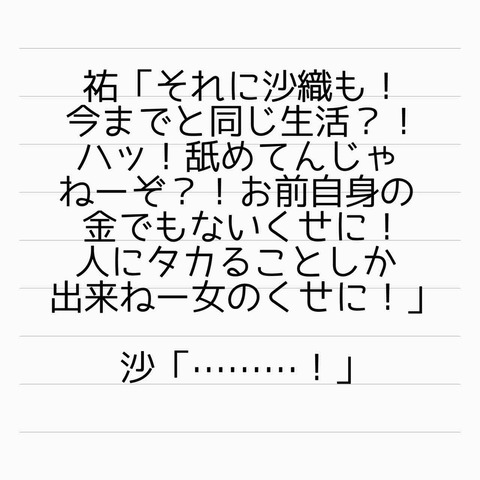 祐「それに沙織も！
今までと同じ生活？！
ハッ！舐めてんじゃ
ねーぞ？！お前自身の
金でもないくせに！
人にタカることしか
出来ねー女のくせに！」
沙「………！」